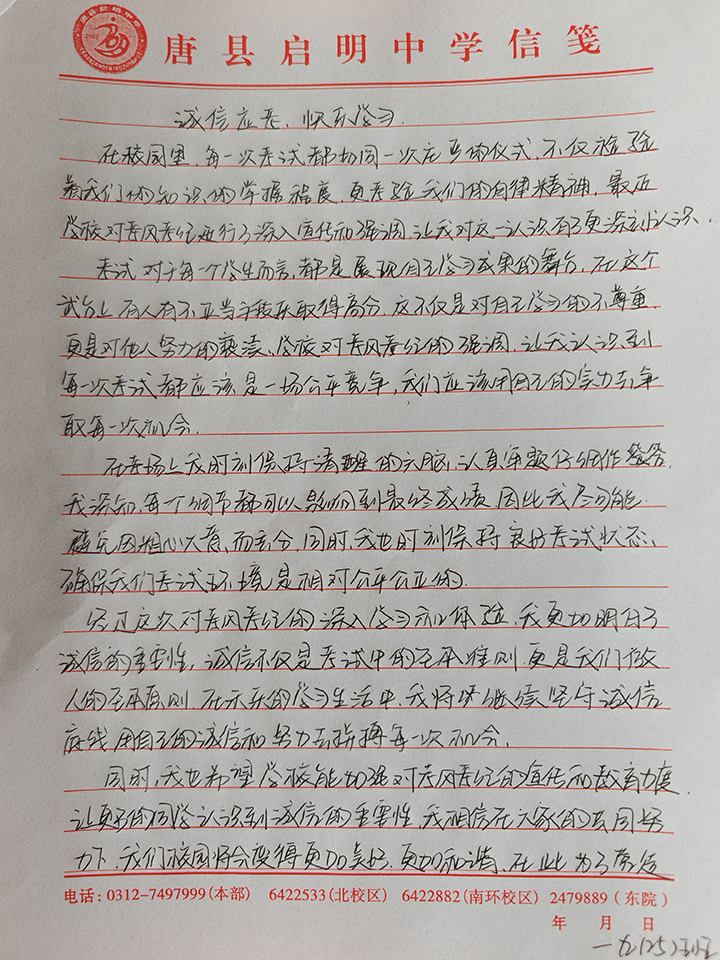 唐县启明中学信笺
诚信应考、快乐学习
在校园里,每一次考试都如同一次庄严的仪式,不仅检验
着我们的知识的掌握程度,更考验我们的自律精神,最近
学校对考风考纪进行了深入宣传和强调,让我对这一认识有了更深刻认识、
考试对于每个学生而言,都是展现自己学习成果的舞台,在这个
舞台上有人有不正当手段获取得高分,这不仅是对自己学习的不尊重,
更是对他人努力的亵渎、学校对考风考纪的强调,让我认识到
每一次考试都应该是一场公平竞争,我们应该用自己的实力去争
取每一次机会.
在考场上我时刻保持清醒的头脑,认真审题仔细作答,
我深知,每个细节都可以影响到最终成绩,因此我尽可能
避免因粗心大意,而丢分,同时,我也时刻保持良好考试状态、
确保我们考试环境是相对公平公正的.
经过这次对考风考纪的深入学习和体验,我更加明白了
诚信的重要性,诚信不仅是考试中的基本准则更是我们做
人的基本原则,在未来的学习生活中,我将继续坚守诚信
底线用自己的诚信和努力去拼搏每一次机会、
同时,我也希望学校能加强对考风考纪的宣传和教育力度,
让更多的同学认识到诚信的重要性,我相信在大家的共同努
力下,我们校园将会变得更加美好,更加和谐,在此为了
电话:0312-7497999(本部) 6422533(北校区) 6422882(南环校区) 2479889(东院)
年 月 日
一九(25)班